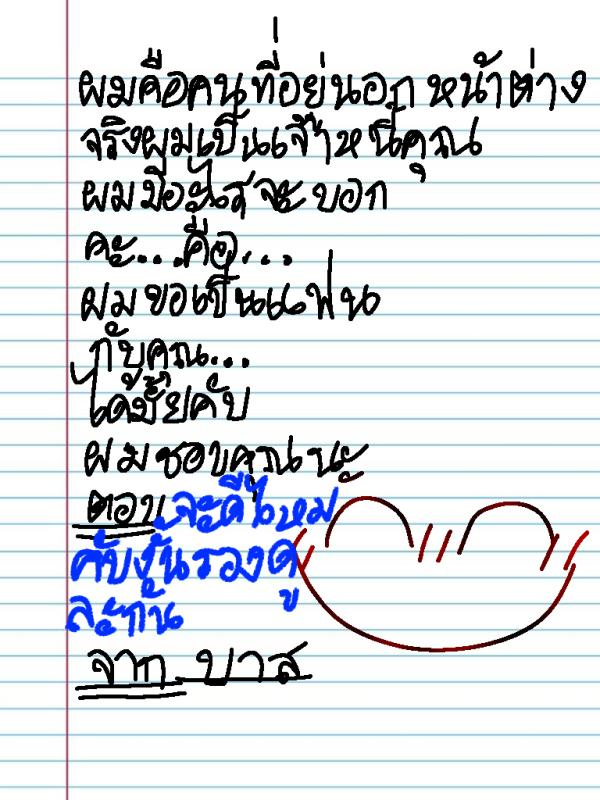 ผมคือคนที่อยู่นอกหน้าต่าง
จริงผมเป็นเจ้าหนี้คุณ
ผมมีอะไรจะบอก
คะ...คือ...
ผมขอเป็นแฟน
กับคุณ...
ได้มั้ยคับ
ผมชอบคุณนะ
ตอบ จะดีไหม
คับงั้นรองดู
ละกัน
จาก บาส